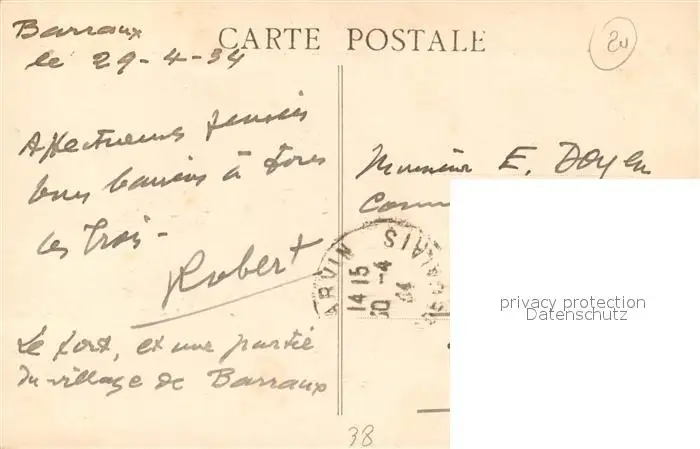 Barraux
le 29-4-34
CARTE POSTALE
20
Affectueuses pensées
bons baisers à tous
les trois -
Robert
Le fort, et une partie
du village de Barraux
Monsieur E. Doyen
ARVIN
CALAIS
14 15
30 -4
34
privacy protection
Datenschutz
38